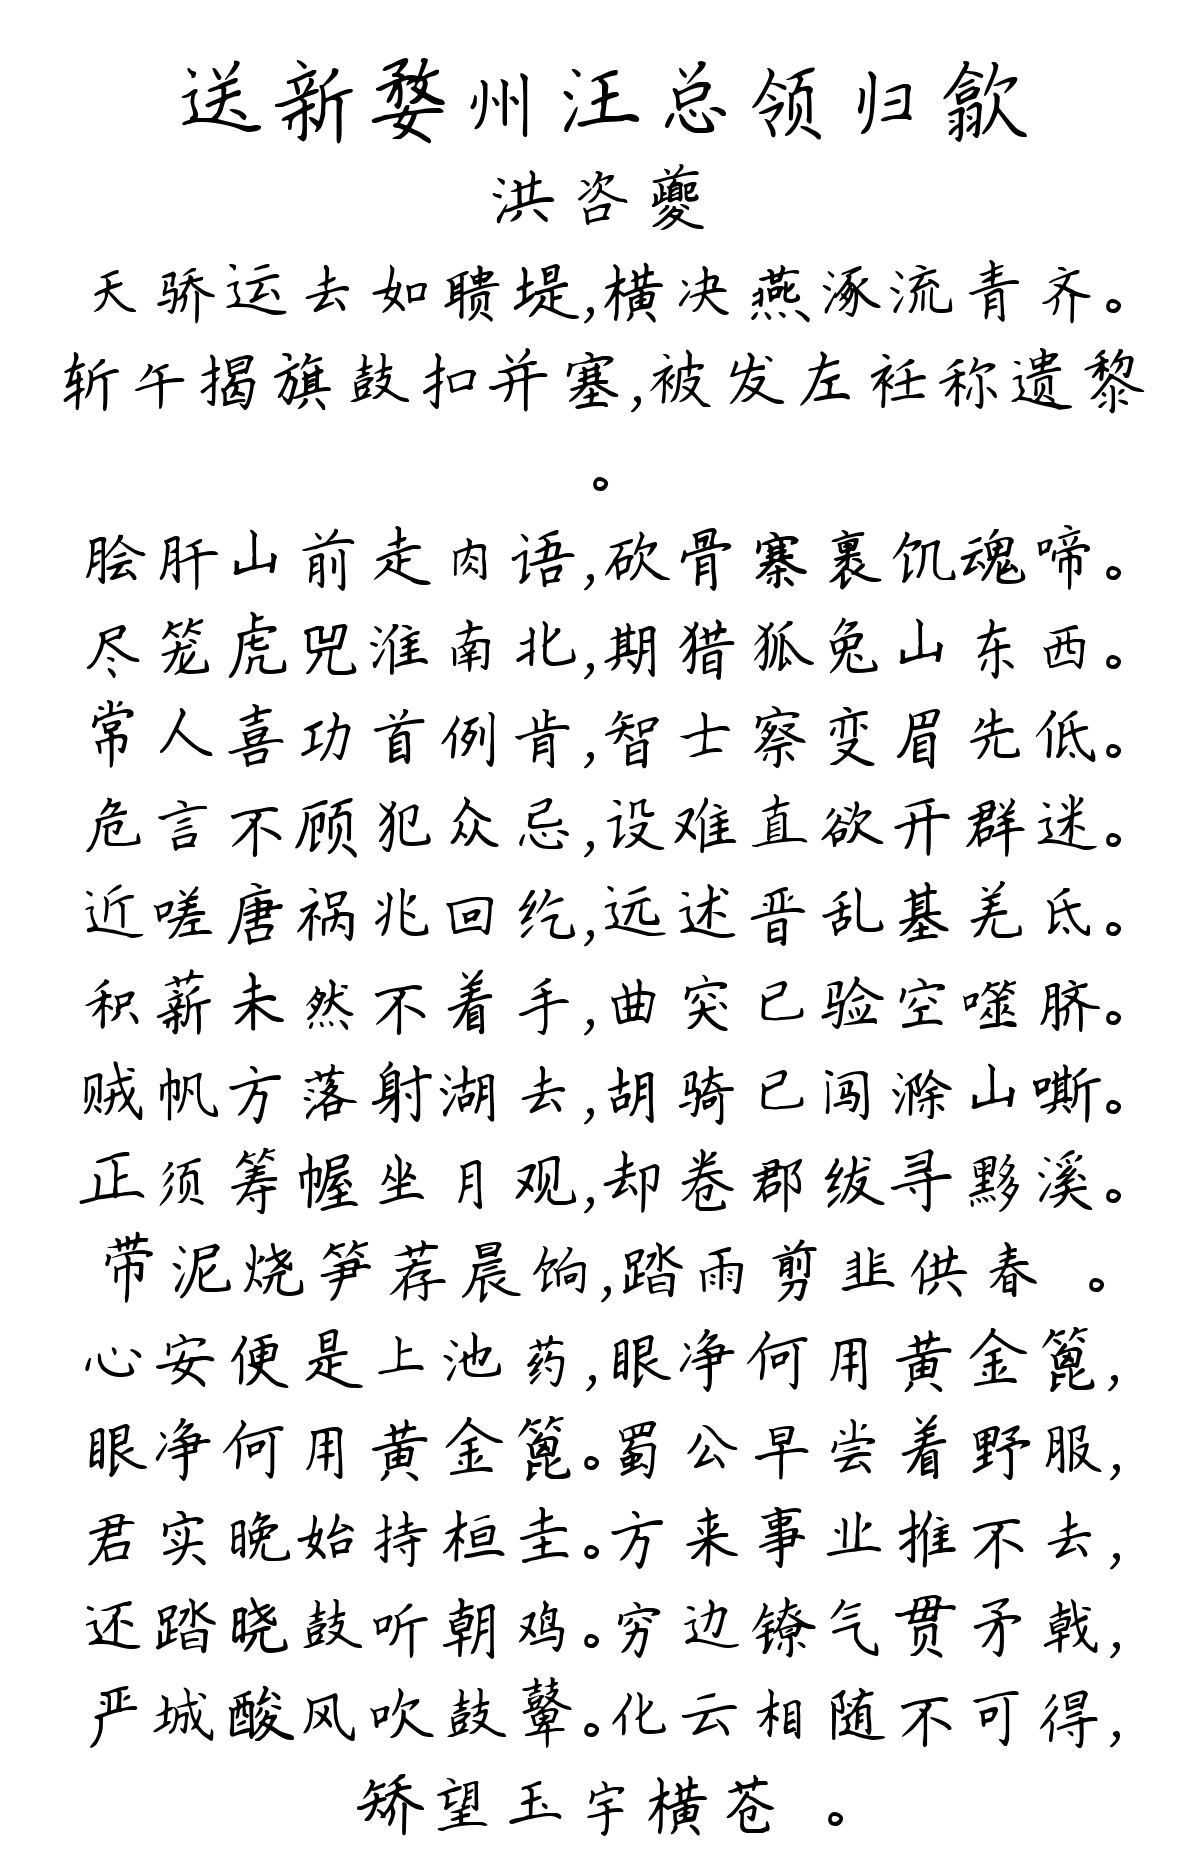 送新婺州汪总领归歙
洪咨夔
天骄运去如聩堤,横决燕涿流青齐。
斩午揭旗鼓扣并塞,被发左衽称遗黎
。
脍肝山前走肉语,砍骨寨裹饥魂啼。
尽笼虎兕淮南北,期猎狐兔山东西。
常人喜功首例肯,智士察变眉先低。
危言不顾犯众忌,设难直欲开群迷。
近嗟唐祸兆回纥,远述晋乱基羌氐。
积薪未然不着手,曲突已验空噬脐。
贼帆方落射湖去,胡骑已闯滁山嘶。
正须筹幄坐月观,却卷郡绂寻黟溪。
带泥烧笋荐晨饷,踏雨剪韭供春 。
心安便是上池药,眼净何用黄金篦,
眼净何用黄金篦。蜀公早尝着野服,
君实晚始持桓圭。方来事业推不去,
还踏晓鼓听朝鸡。穷边镣气贯矛戟,
严城酸风吹鼓鼙。化云相随不可得,
矫望玉宇横苍 。